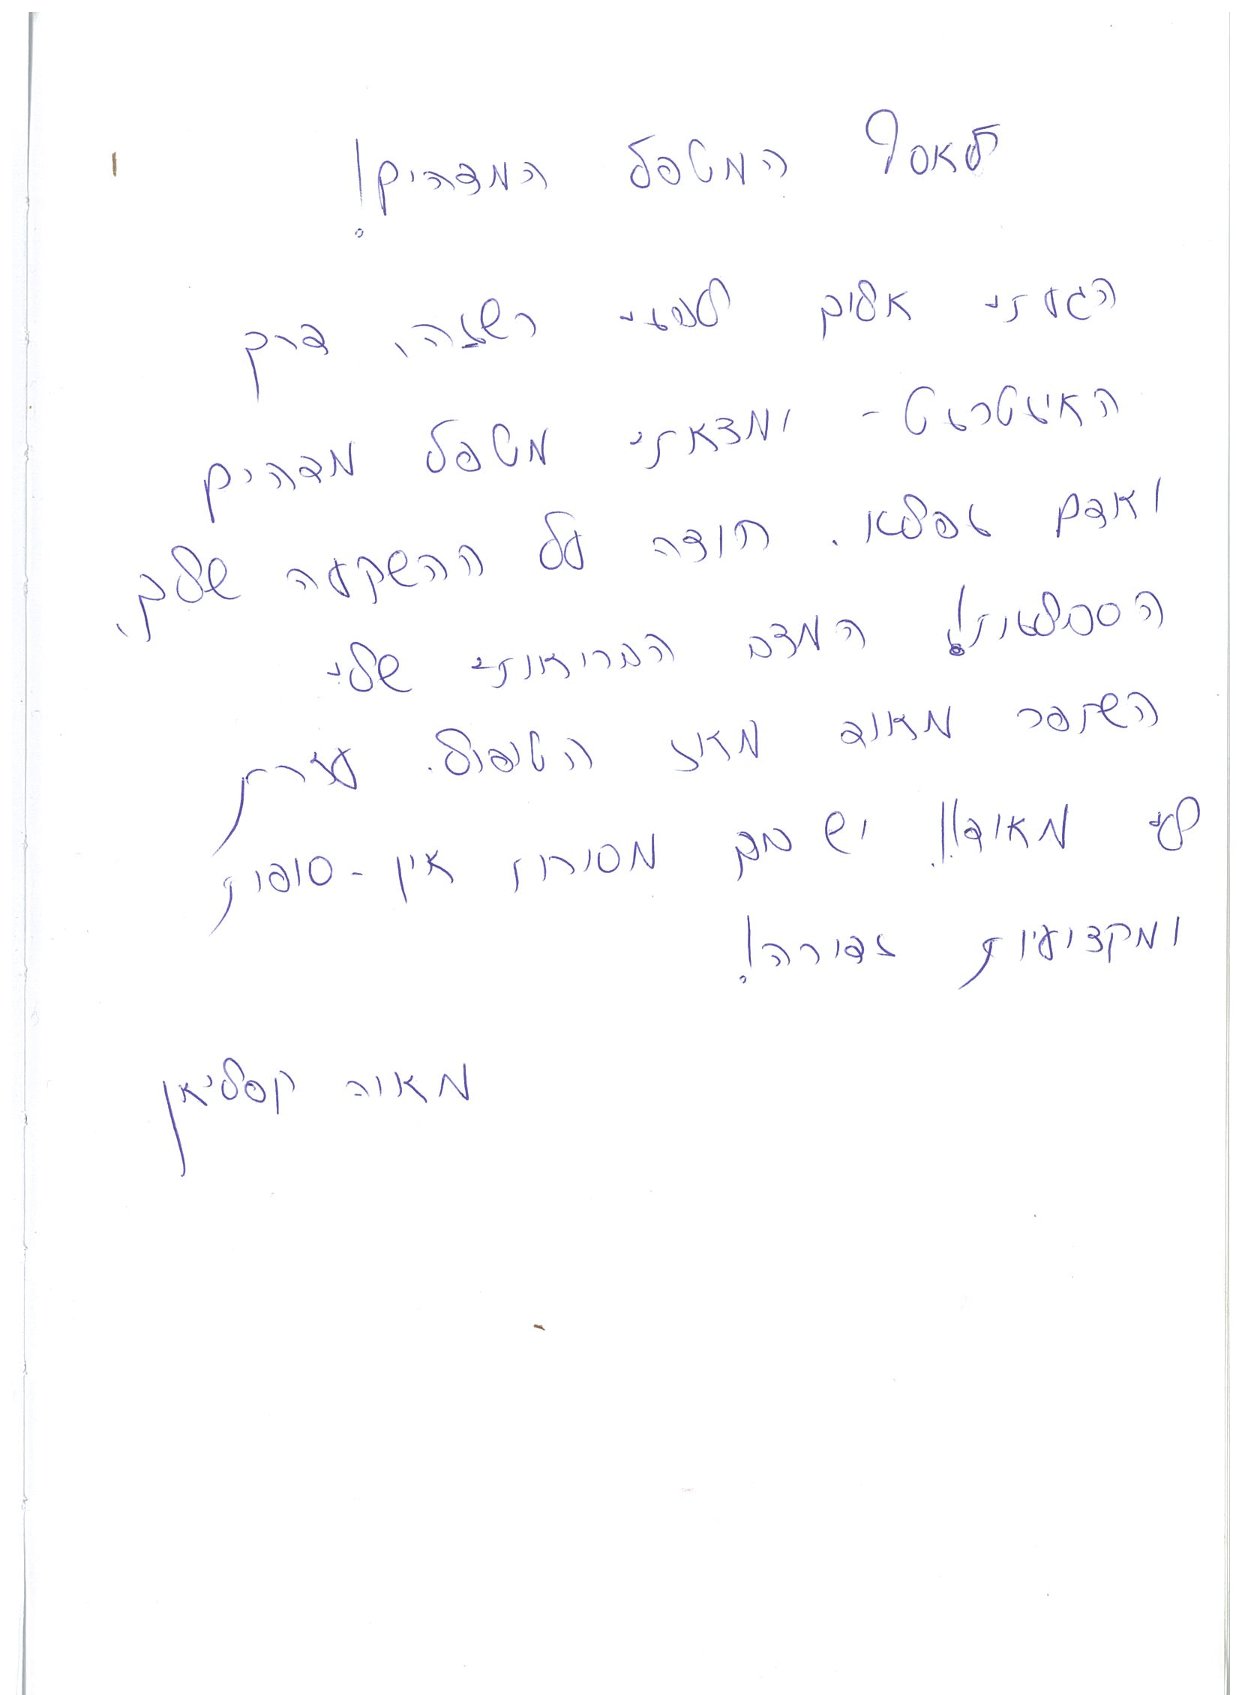 לאסף המטפל המדהים!
הגעתי אליך לפני כשנה, דרך
האינטרנט - ומצאתי מטפל מדהים
ואדם נפלא. תודה על ההשקעה שלך,
הסבלנות! המצב הבריאותי שלי
השתפר מאוד מאז הטיפול. עזרת
לי מאוד!! יש בך מסירות אין-סופית
ומקצועיות נדירה!
מאוה קפליאן